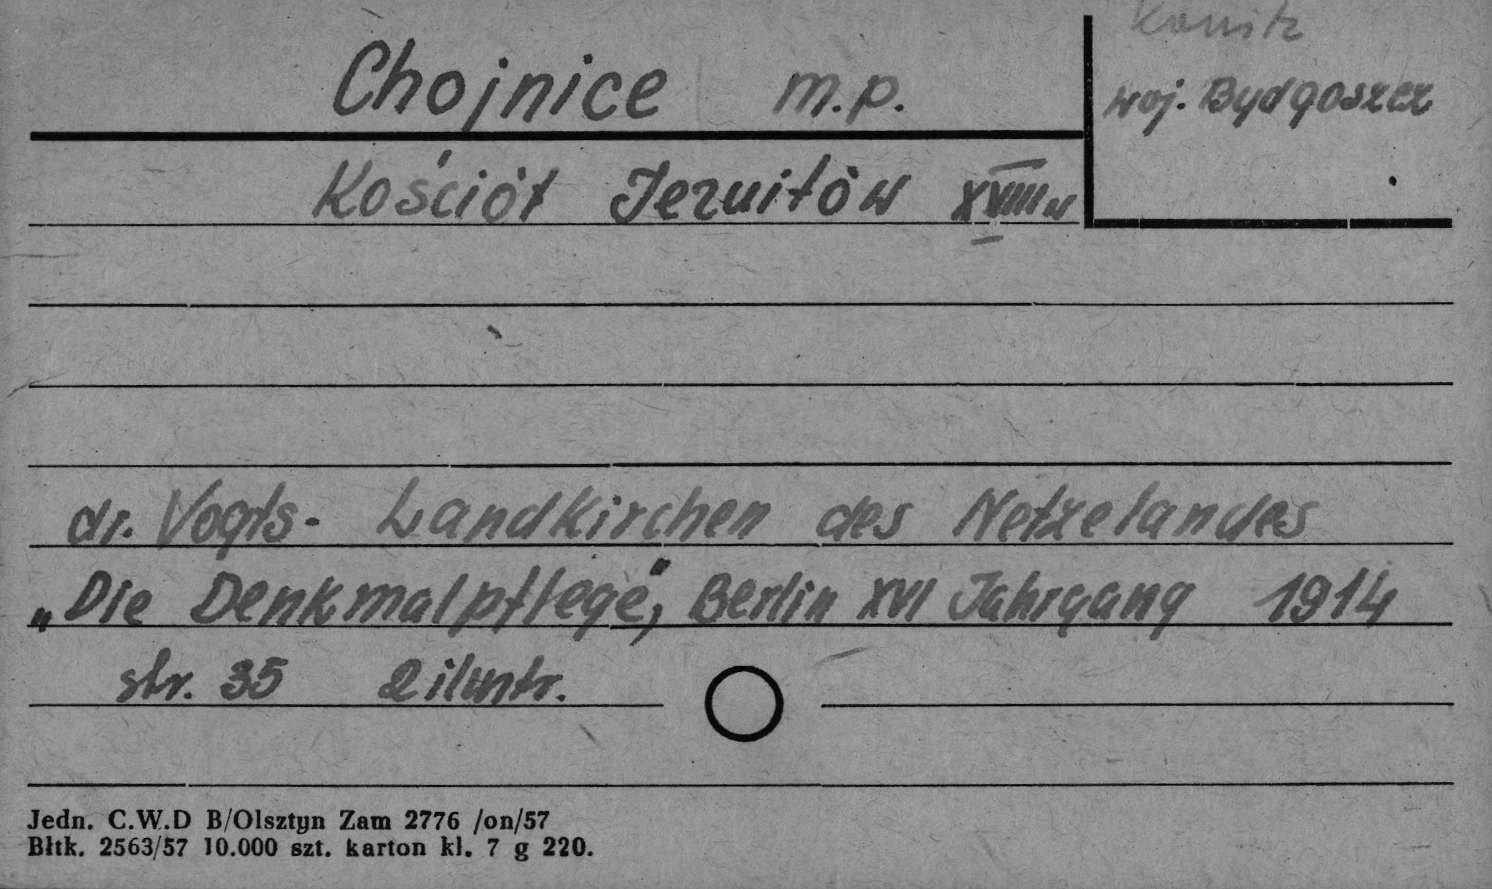 Konitz
Chojnice m.p.
woj. Bydgoszcz
Kościół Jezuitów XVIII w
dr. Vogts - Landkirchen des Netzelandes
„Die Denkmalpflege", Berlin XVI Jahrgang 1914
str. 35 2 ilustr.
Jedn. C.W.D B/Olsztyn Zam 2776 /on/57
Bltk. 2563/57 10.000 szt. karton kl. 7 g 220.